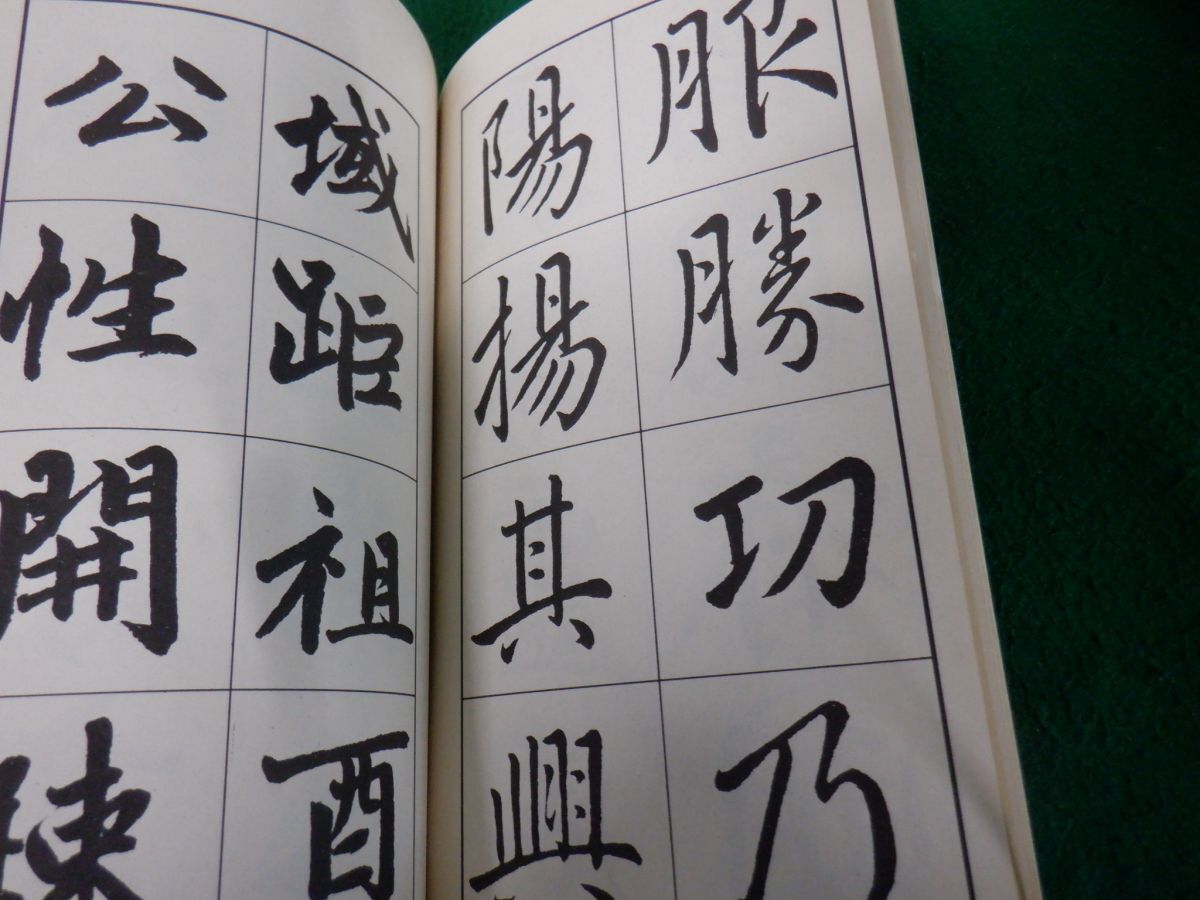 服勝功乃
陽揚其興
域距祖酉
公性開